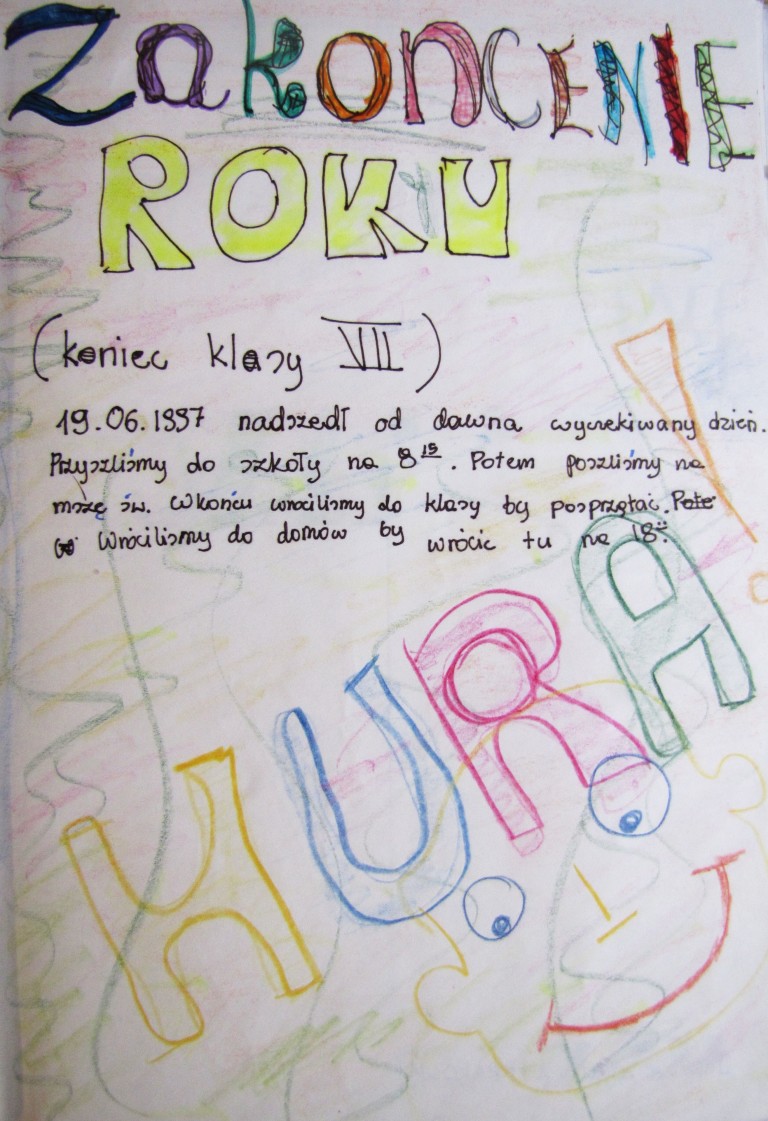 ZakoncENIE
ROKU
(koniec klasy VII)
19.06.1997 nadszedł od dawna wyczekiwany dzień.
Przyszliśmy do szkoły na 8¹⁵. Potem poszliśmy na
mszę św. Wkońcu wróciliśmy do klasy by posprzątać. Pote
Wróciliśmy do domów by wrócić tu na 18⁰⁰.
HURA!